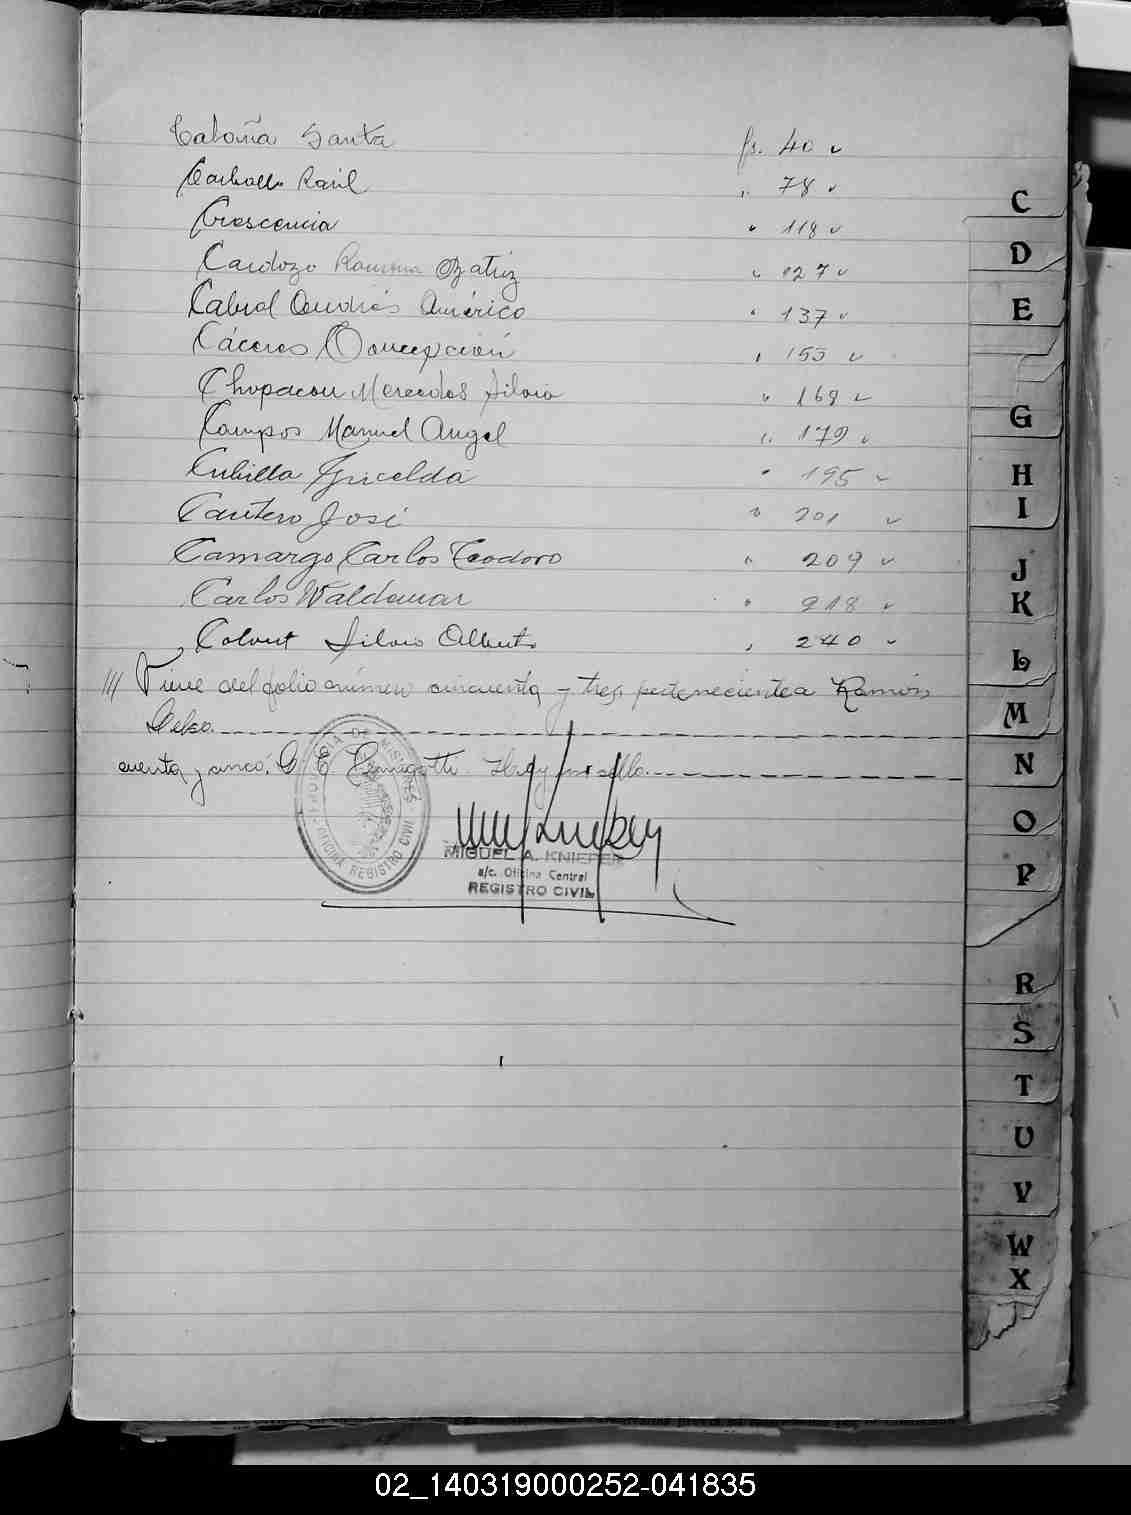 Cabaña Santa fs. 40 v
Carballo Raúl " 78 v
Crescencia " 118 v
Cardozo Ramona Beatriz " 127 v
Cabral Andrés Américo " 137 v
Cáceres Concepción " 155 v
Chupacou Mercedes Silvia " 168 v
Campos Manuel Angel " 179 v
Cubilla Griselda " 195 v
Cantero José " 201 v
Camargo Carlos Teodoro " 209 v
Carlos Waldemar " 218 v
Calvert Silvio Alberto " 240 v
/// Viene del folio número cincuenta y tres perteneciente a Ramón
Gelso.
cuenta y cinco. G. E. Hay un sello.
PROVINCIA DE MISIONES
OFICINA REGISTRO CIVIL
MIGUEL A. KNIEPER
a/c. Oficina Central
REGISTRO CIVIL
C
D
E
G
H
I
J
K
L
M
N
O
P
R
S
T
U
V
W
X
02_140319000252-041835